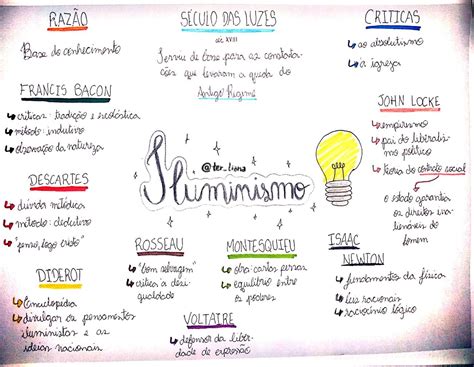 RAZÃO
Base do conhecimento
SÉCULO DAS LUZES
séc XVIII
Serviu de base para as contesta-
ções que levaram a queda do
Antigo Regime
CRITICAS
ao absolutismo
a igreja
FRANCIS BACON
criticas: tradição e escolástica
método: indutivo
observação da natureza
DESCARTES
dúvida metódica
método: dedutivo
"penso, logo existo"
DIDEROT
Enciclopédia
divulgar os pensamentos
iluministas e as
ideias racionais
Iluminismo
ROSSEAU
"bom selvagem"
critica a desi
gualdade
MONTESQUIEU
obra: cartas persas
equilíbrio entre
os poderes
VOLTAIRE
defensor da liber-
dade de expressão
JOHN LOCKE
empirismo
pai do liberalis
político
teoria do contrato social
o estado garantia
os direitos inali
enáveis do
homem
ISAAC
NEWTON
fundamentos da física
leis racionais
raciocínio lógico